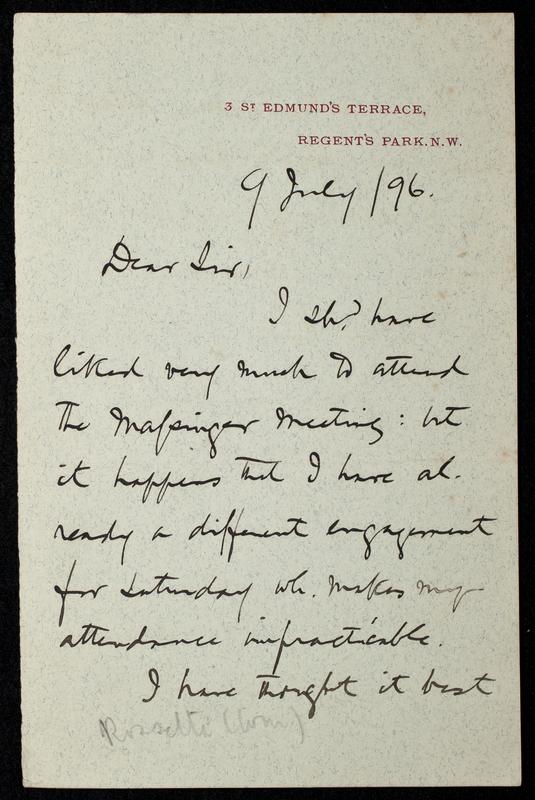 3 ST EDMUND'S TERRACE,
REGENT'S PARK.N.W.
9 July /96.
Dear Sir,
I shd. have
liked very much to attend
the Massinger Meeting: but
it happens that I have al-
ready a different engagement
for Saturday wh. makes my
attendance impracticable.
I have thought it best
Rossetti (Wm)